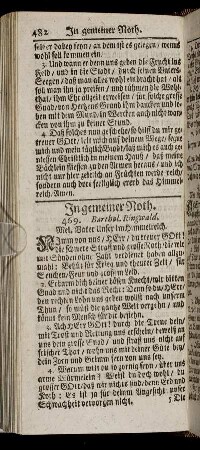 482 In gemeiner Noth.
selber dabey seyn / an dem ist es gelegen / wenns
wohl soll
3. Und wann er denn uns geben die Frucht ins
Feld / und in die Stadt / durch seinen Vaters-
Seegen / daß man alles wohl ein bracht hat / als
soll man ihn ja preisen / und rühmen die Wohl-
that / ihm Ehr allzeit erweisen / für solche grosse
Gnad / von Hertzens Grund ihm dancken und le-
ben mit dem Mund / in Wercken auch nicht wan-
cken von ihm zu keiner Stund.
4. Daß solches nun geschehe so hilff du mir ge-
treuer GOtt / leit mich auf deinem Wege /
und mein täglich Brodt / daß mich es auch ge-
niessen Christlich in meinem Hauß / daß meine
Bächlein fliessen zu den Armen heraus / und ich
nicht nur hier zeitlich an Früchten werde reich /
sondern auch dort seeliglich ererb das Himmel-
reich. Amen.
In gemeiner Noth.
469. Barthol. Ringwald.
Mel. Vater unser im Himmelreich.
Nimm von uns / HErr / du treuer GOtt!
Die schwere Straf und grosse Noth die wir
mit Sünden ohne Zahl verdienet haben allzu-
mahl: Behüt für Krieg und theurer Zeit / für
Seuchen / Feur und grossem Leid.
2. Erbarm dich deiner bösen Knecht / wir bitten
Gnad und nicht das Recht: Denn so du / HErr /
den rechten Lohn uns geben wolst nach unserm
Thun / so müst die gantze Welt vergehn / und
könt kein Mensch für dir bestehn.
3. Ach HErr GOtt! durch die Treue dein /
mit Trost und Rettung uns erschein / beweiß an
uns dein grosse Gnad / und straf uns nicht auf
frischer That / wohn uns mit deiner Güte bey /
dein Zorn und Grimm fern von uns sey.
4. Warum wilt du so zornig seyn / über uns
arme Würmelein? Weist du doch wohl / du
grosser GOtt! daß wir nichts sind / denn Erd und
Koth: Es ist ja für deinem Angesicht unser
Schwachheit verborgen nicht.
5 Die